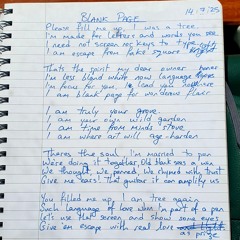 14.7.25
BLANK PAGE
Please fill me up. I was a tree
I'm made for letters and words you see
I need not screen or keys to type
I am escape from fake square
Thats the spirit my dear owner
I'm less bland white now language
I'm focus for you, lead you
I am blank page for wonders flair
I am truly your grove
I am your own wild garden
I am time from minds stove
I am where art will age-harden
Theres the soul. I'm married to pen
We're doing it together. Old Hat sees a win
We thought, we penned, we rhymed with trust
Give me ears. That guitar it can amplify us
You filled me up. I am tree again
Such language of love when in part of a pen
Lets use that screen and show some eyes
Give an escape with real love as prize